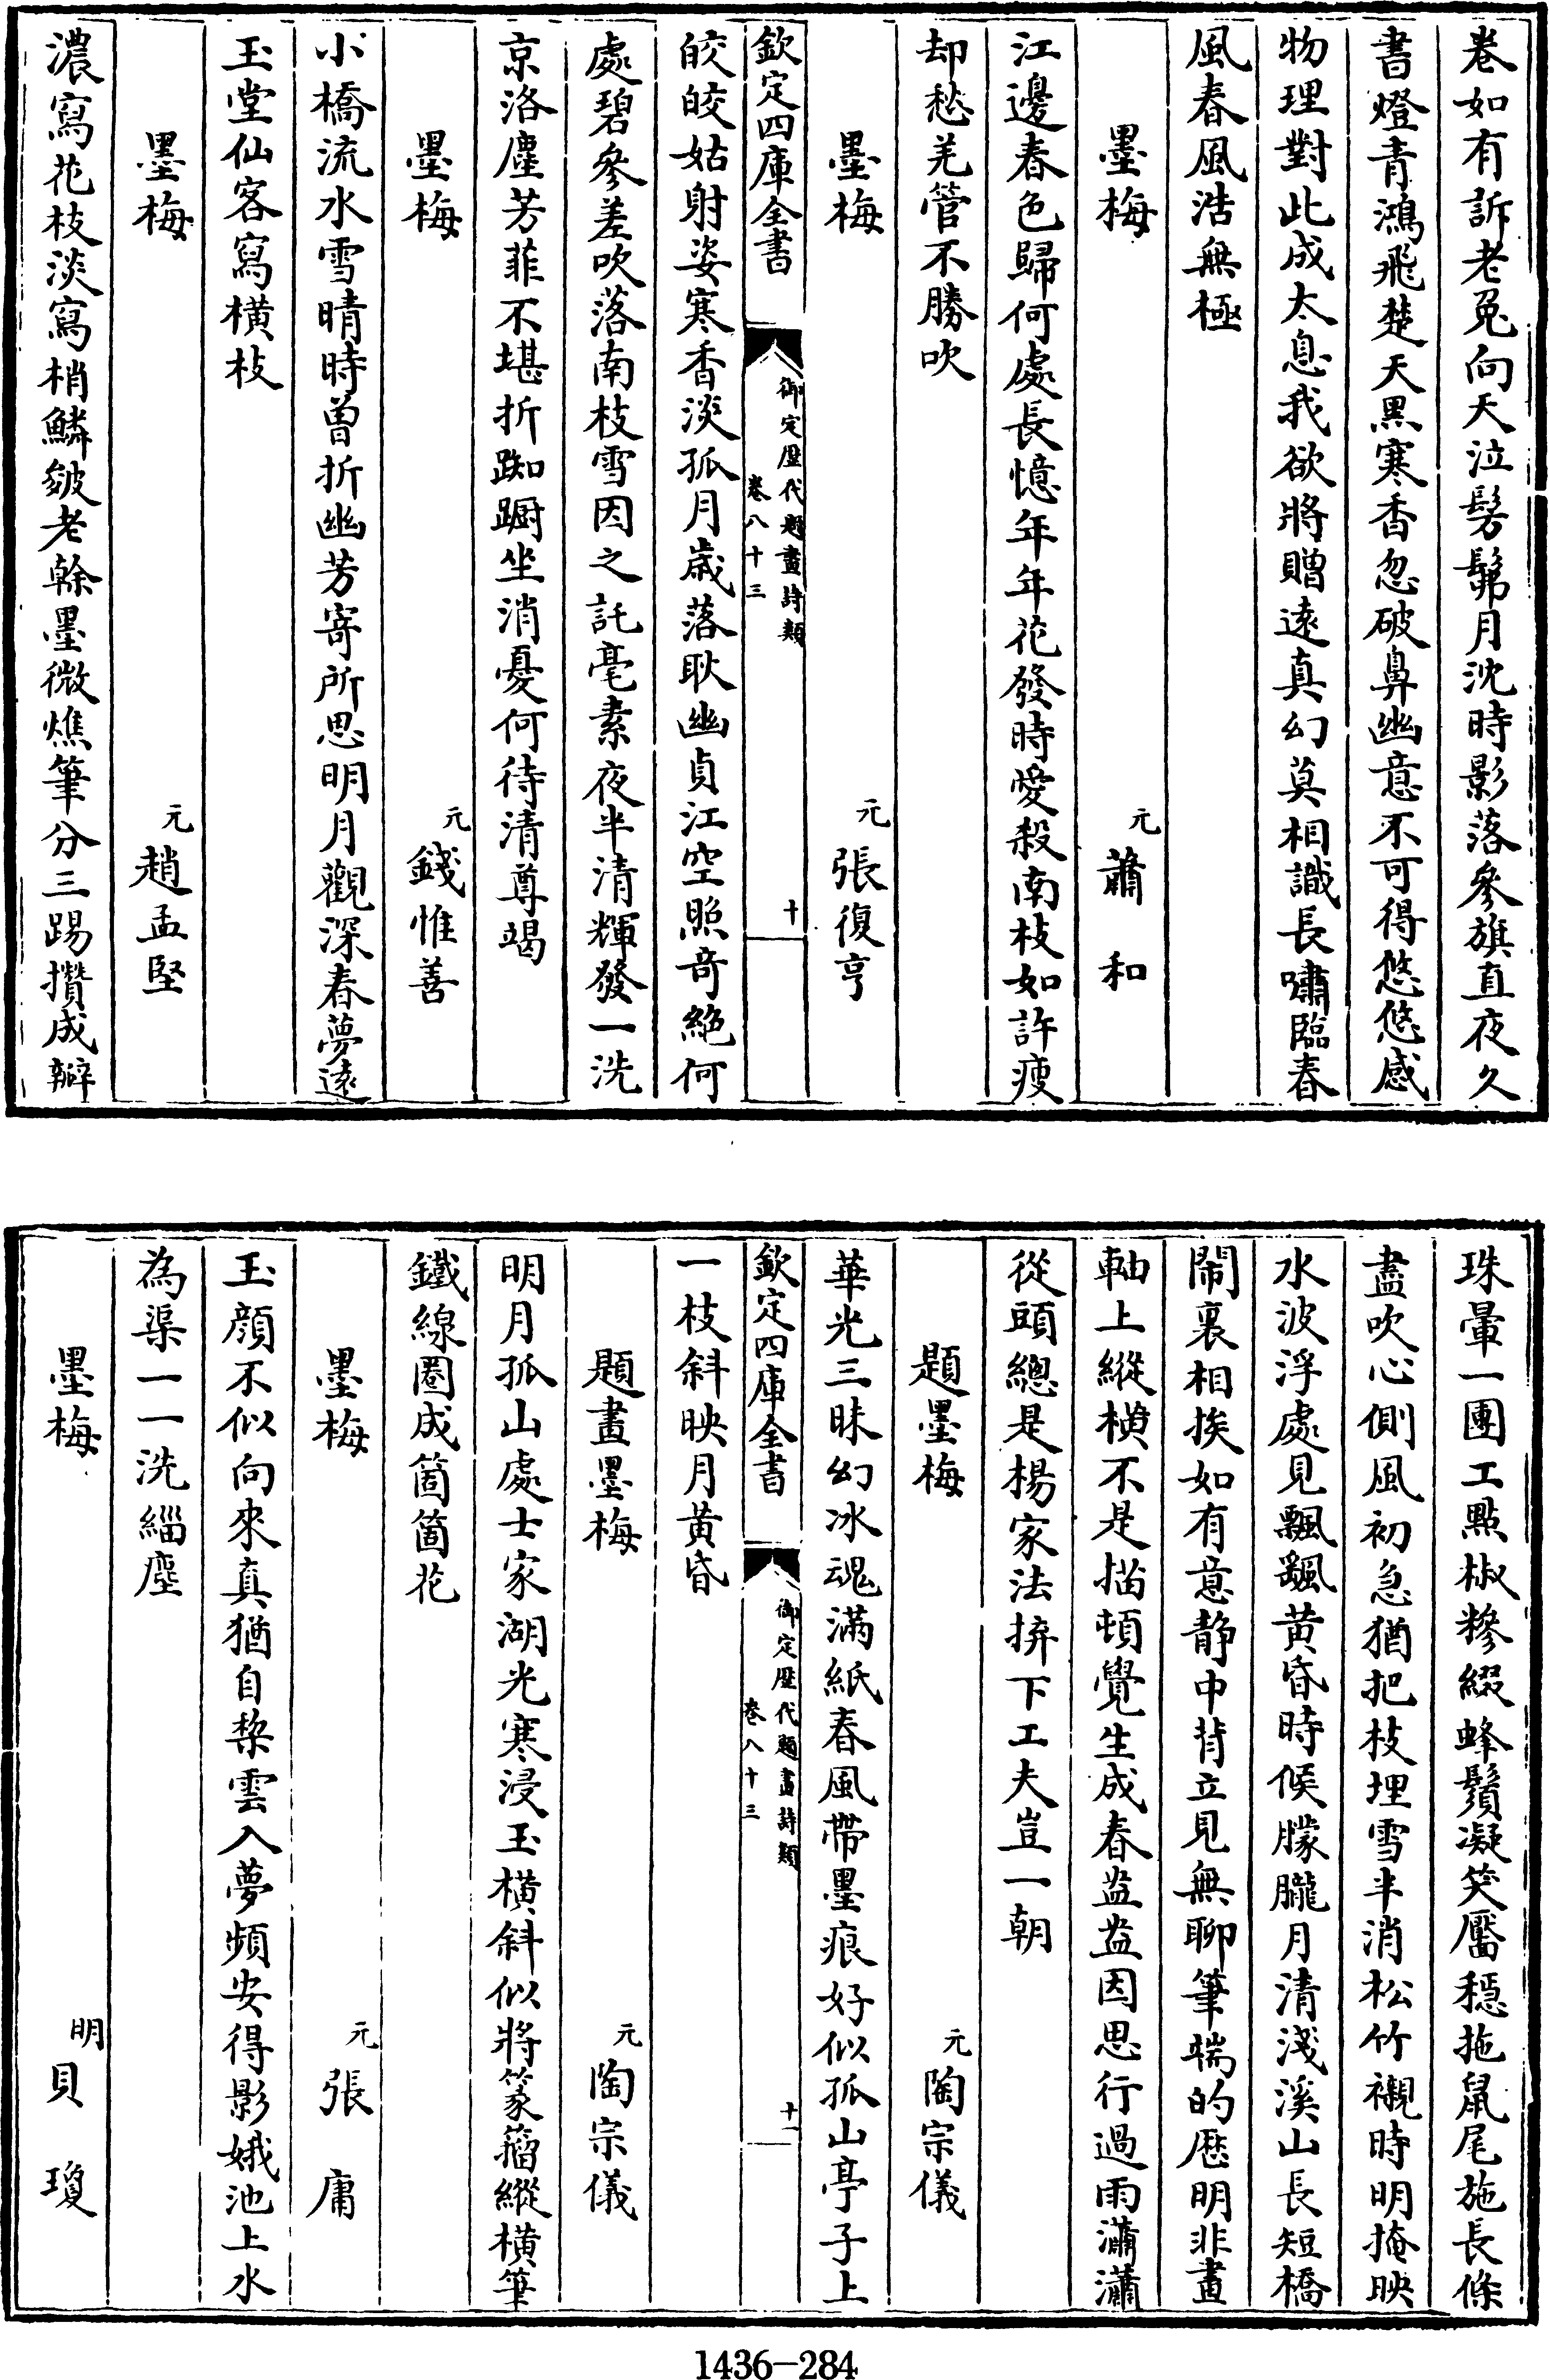 卷如有訴老兎向天泣髣髴月沈時影落參旗直夜久
書燈青鴻飛楚天黒寒香忽破鼻幽意不可得悠悠感
物理對此成太息我欲將贈逺真幻莫相識長嘯臨春
風春風浩無極
墨梅 元 蕭和
江邊春色歸何處長憶年年花發時愛殺南枝如許瘦
却愁羌管不勝吹
墨梅 元 張復亨
欽定四庫全書 御定歷代題畫詩類 卷八十三 十
皎皎姑射姿寒香淡孤月歳落耿幽貞江空照竒絶何
處碧參差吹落南枝雪因之託毫素夜半清輝發一洗
京洛塵芳菲不堪折踟蹰坐消憂何待清尊竭
墨梅 元 錢惟善
小橋流水雪晴時曾折幽芳寄所思明月觀深春夢逺
玉堂仙客寫橫枝
墨梅 元 趙孟堅
濃寫花枝淡寫梢鱗皴老榦墨微燋筆分三踢攅成瓣
珠暈一團工點椒糝綴蜂鬚凝笑靨穏拖鼠尾施長條
盡吹心側風初急猶把枝埋雪半消松竹襯時明掩映
水波浮處見飄颻黄昏時候朦朧月清淺溪山長短橋
閙裏相挨如有意静中背立見無聊筆端的歴明非畫
軸上縱橫不是描頓覺生成春盎盎因思行過雨瀟瀟
從頭總是楊家法拚下工夫豈一朝
題墨梅 元 陶宗儀
華光三昧幻冰魂滿紙春風帶墨痕好似孤山亭子上
欽定四庫全書 御定歷代題畫詩類 卷八十三 十一
一枝斜映月黄昏
題畫墨梅 元 陶宗儀
明月孤山處士家湖光寒浸玉橫斜似將篆籀縱橫筆
鐵線圈成箇箇花
墨梅 元 張庸
玉顔不似向來真猶自棃雲入夢頻安得影娥池上水
為渠一一洗緇塵
墨梅 明 貝瓊
1436-284